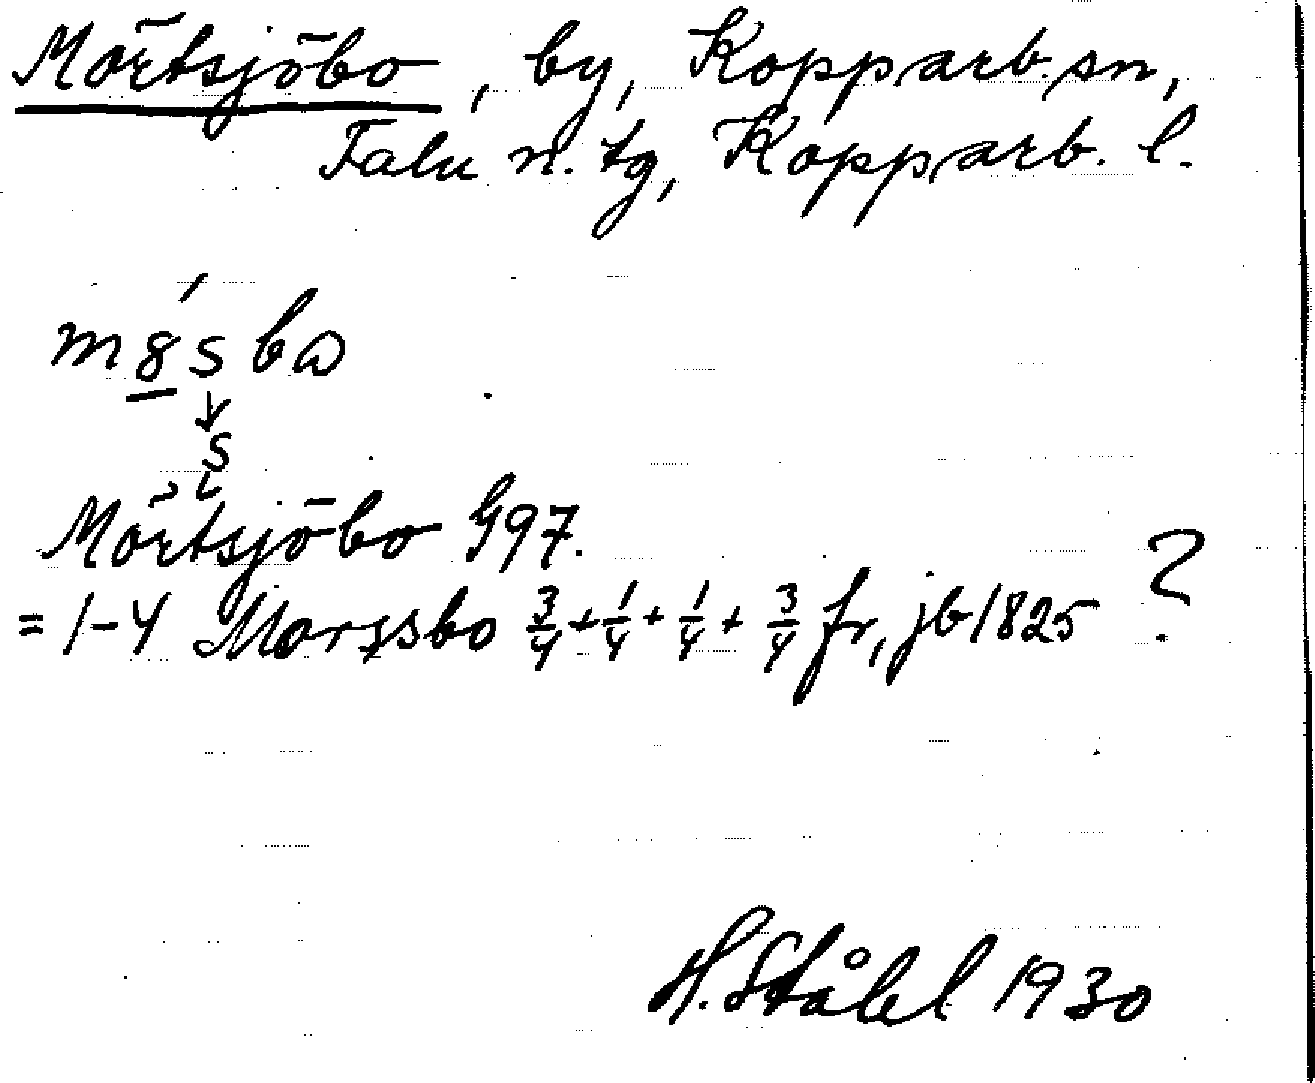 Mörtsjöbo, by, Kopparb. sn,
Falu n. tg, Kopparb. l.
m8́sbɷ
s
Mörtsjöbo G97.
= 1-4 Morssbo 3/4 + 1/4 + 1/4 + 3/4 fr, jb 1825 ?
H. Ståhl 1930